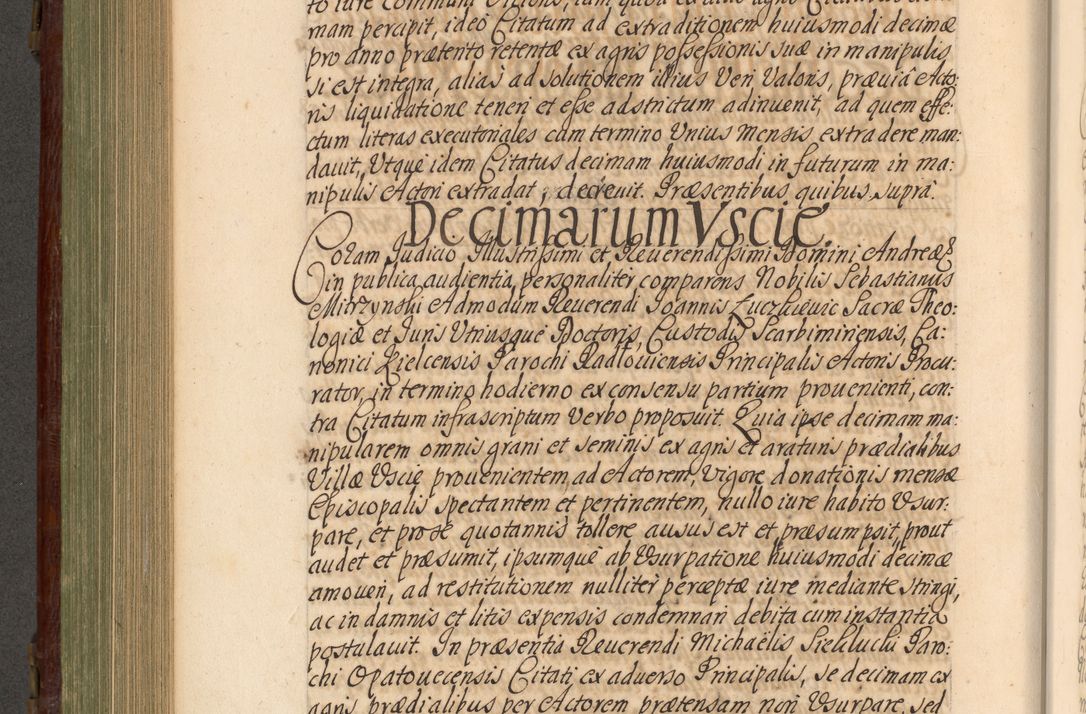 to iure Communi Vicions, iam quod ex alijs agris
mam percipit, ideo Citatum ad extraditionem huiusmodi decimæ
pro anno prætento retentæ ex agris possessionis suæ in manipulis
si est integra, alias ad solutionem illius Veri Valoris, præuia Acto:
ris liquidatione teneri et esse adstrictum adinuenit, ad quem effe:
ctum literas executoriales cum termino Vnius Mensis extradere man:
dauit, Vtque idem Citatus decimam huiusmodi in futurum in ma:
nipulis Actori extradat, decreuit. Præsentibus quibus supra.
Decimarum Vscie.
Coram Judicio Illustrissimi et Reuerendissimi Domini Andreæ &
in publica audientia personaliter comparens Nobilis Sebastianus
Mitrzynski Admodum Reuerendi Joannis Zuczkiewic Sacræ Theo:
logiæ et Juris Vtriusque Doctoris, Custodis Scarbimiriensis, Ca:
nonici Kielcensis Parochi Radłouiensis Principalis Actoris Procu:
rator, in termino hodierno ex consensu partium prouenienti, con:
tra Citatum infrascriptum Verbo proposuit. Quia ipse decimam ma:
nipularem omnis grani et seminis ex agris et araturis prædialibus
Villæ Vscie prouenientem, ad Actorem, Vigore donationis mensæ
Episcopalis spectantem et pertinentem, nullo iure habito Vsur:
pare, et pro se quotannis tollere ausus est et præsumpsit, prout
audet et præsumit, ipsumque ab Vsurpatione huiusmodi decimæ
amoueri, ad restitutionem nulliter perceptæ iure mediante stringi,
ac in damnis et litis expensis condemnari debita cum instantia
postulauit. In præsentia Reuerendi Michaëlis Siekluckj Paro:
chi Opatouecensis Citati ex aduerso Principalis, se decimam ex
agris prædialibus per Actorem prætensam non Vsurpare, sed